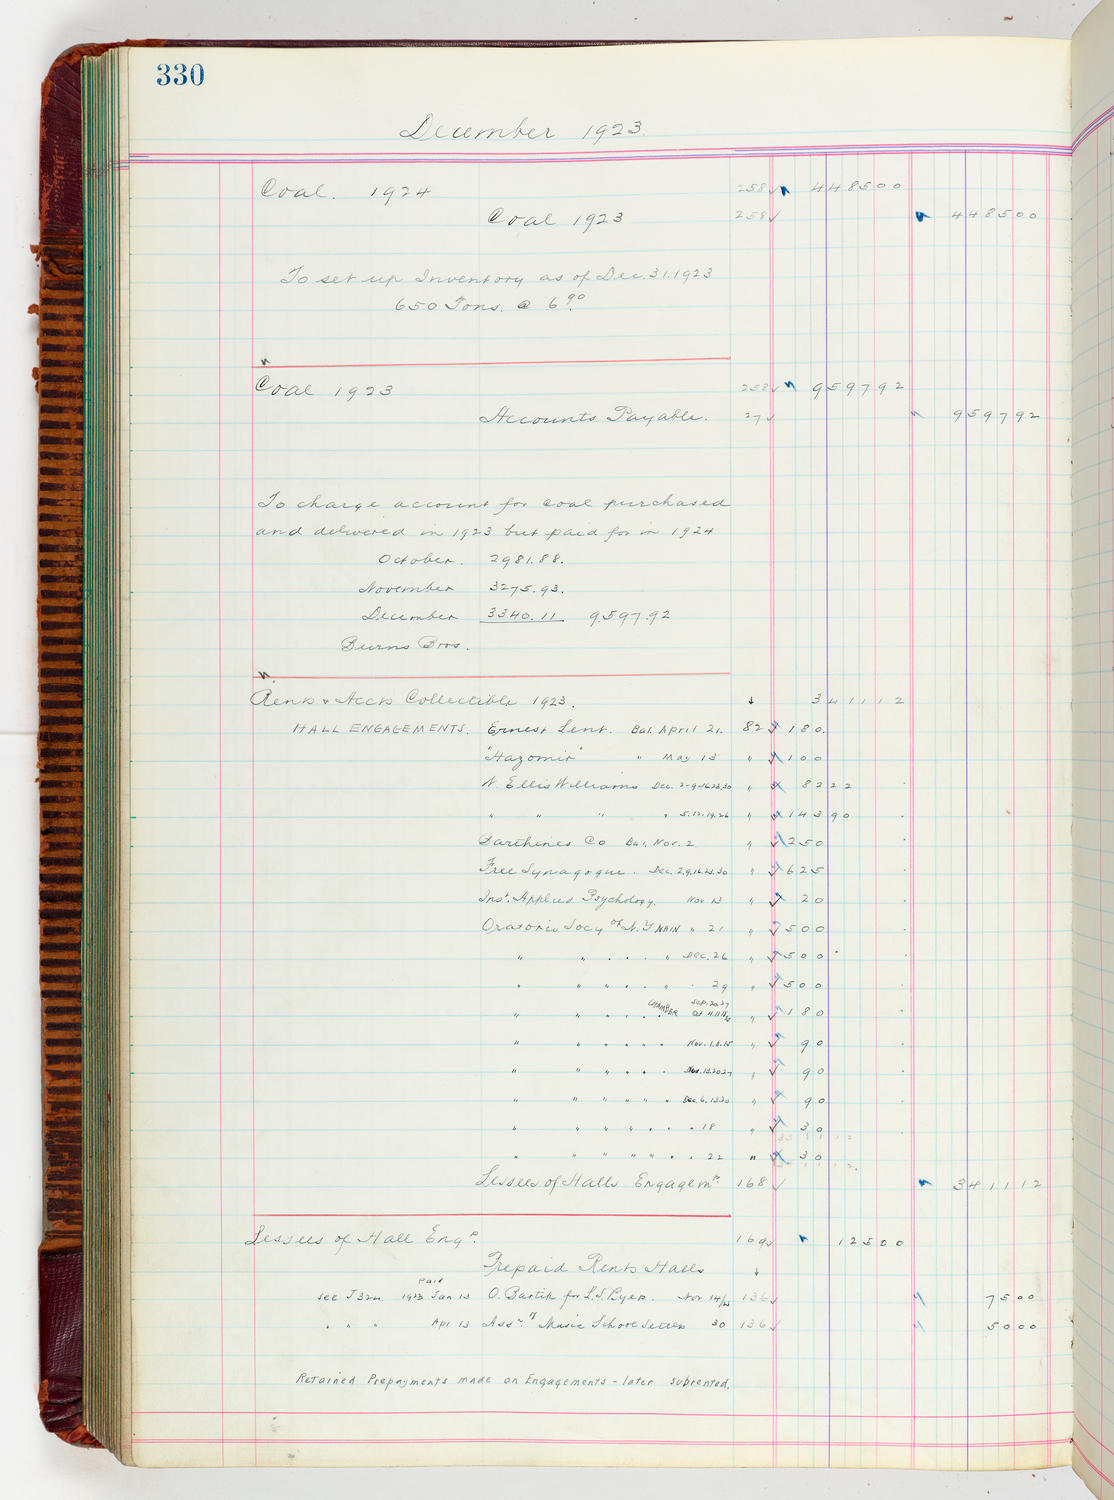 330
December 1923
Coal. 1924 258 √ 448500
Coal 1923 258 √ 448500
To set up Inventory as of Dec. 31. 1923
650 Tons. @ 6 90
Coal 1923 258 √ 959792
Accounts Payable. 27 √ 959792
To charge account for coal purchased
and delivered in 1923 but paid for in 1924
October. 2981.88.
November 3275.93.
December 3340.11 9.597.92
Burns Bros.
Rents & Accts Collectible 1923. ↓ 341112
HALL ENGAGEMENTS. Ernest Lent. Bal. April 21. 82 √ 180.
"Hazomir" " May 13 " √ 100
N. Ellis Williams Dec. 2-9-16.23.30 " 8222
" " " " 5.12.19.26 " 14390
Co Bal. Nov. 2 " √ 250
Free Synagogue. Dec. 2.9.16.23.30 " √ 625
Inst. Applied Psychology. Nov 13 " √ 20
Oratorio Socy of N.Y MAIN " 21 " √ 500
" " " " " " Dec. 26 " √ 500
" " " " " " 29 " √ 500
" " " " " CHAMBER Sep. 20 27 Oct 4.11.18 " √ 180
" " " " " " Nov. 1.8.15 " √ 90
" " " " " " Nov. 13.20.27 " √ 90
" " " " " " Dec. 6.13.20 " √ 90
" " " " " " " 18 " √ 30
" " " " " " " 22 " √ 30
Lessees of Halls Engagemts. 168 √ 341112
Lessees of Hall Engs. 169 √ 12500
Prepaid Rents Halls ↓
Paid
see J324. 1923 Jan 13 O. Bartik for L.S. Nov 14/23 136 √ 7500
" " " Apr 13 Assn. of Music School Settlen 30 136 √ 5000
Retained Prepayments made on Engagements - later subrented.